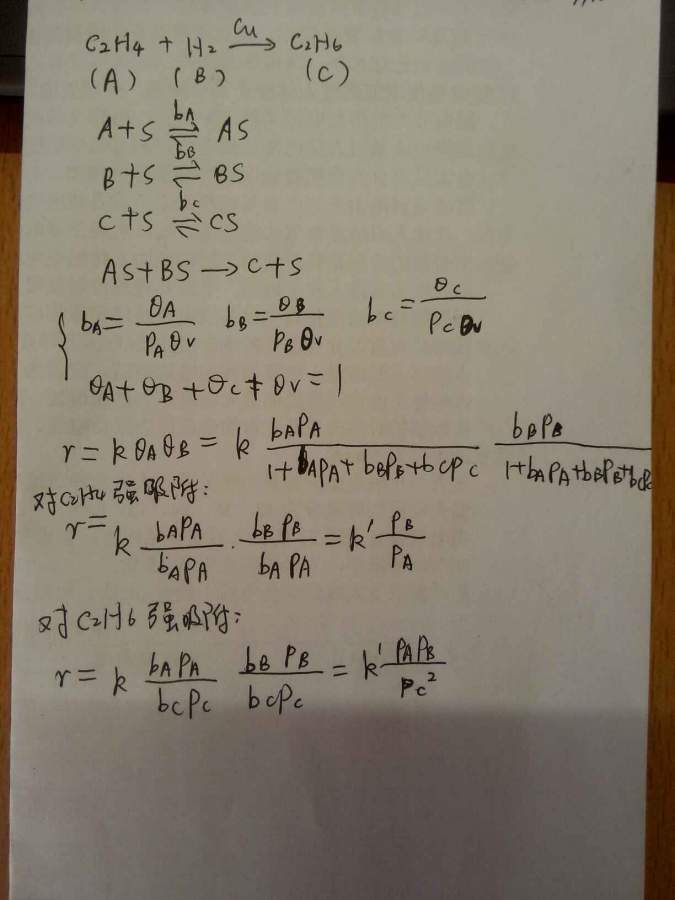 C₂H₄ + H₂ —Cu→ C₂H₆
(A) (B) (C)
A+S ⇌ AS bA
B+S ⇌ BS bB
C+S ⇌ CS bc
AS+BS → C+S
bA = θA / PAθv bB = θB / PBθv bc = θc / Pcθv
θA + θB + θc + θv = 1
r = kθAθB = k bAPA / (1+bAPA+bBPB+bcPc) bBPB / (1+bAPA+bBPB+bcPc
对C₂H₄强吸附:
r = k bAPA / bAPA · bBPB / bAPA = k' PB / PA
对C₂H₆强吸附:
r = k bAPA / bcPc bBPB / bcPc = k' PAPB / Pc²